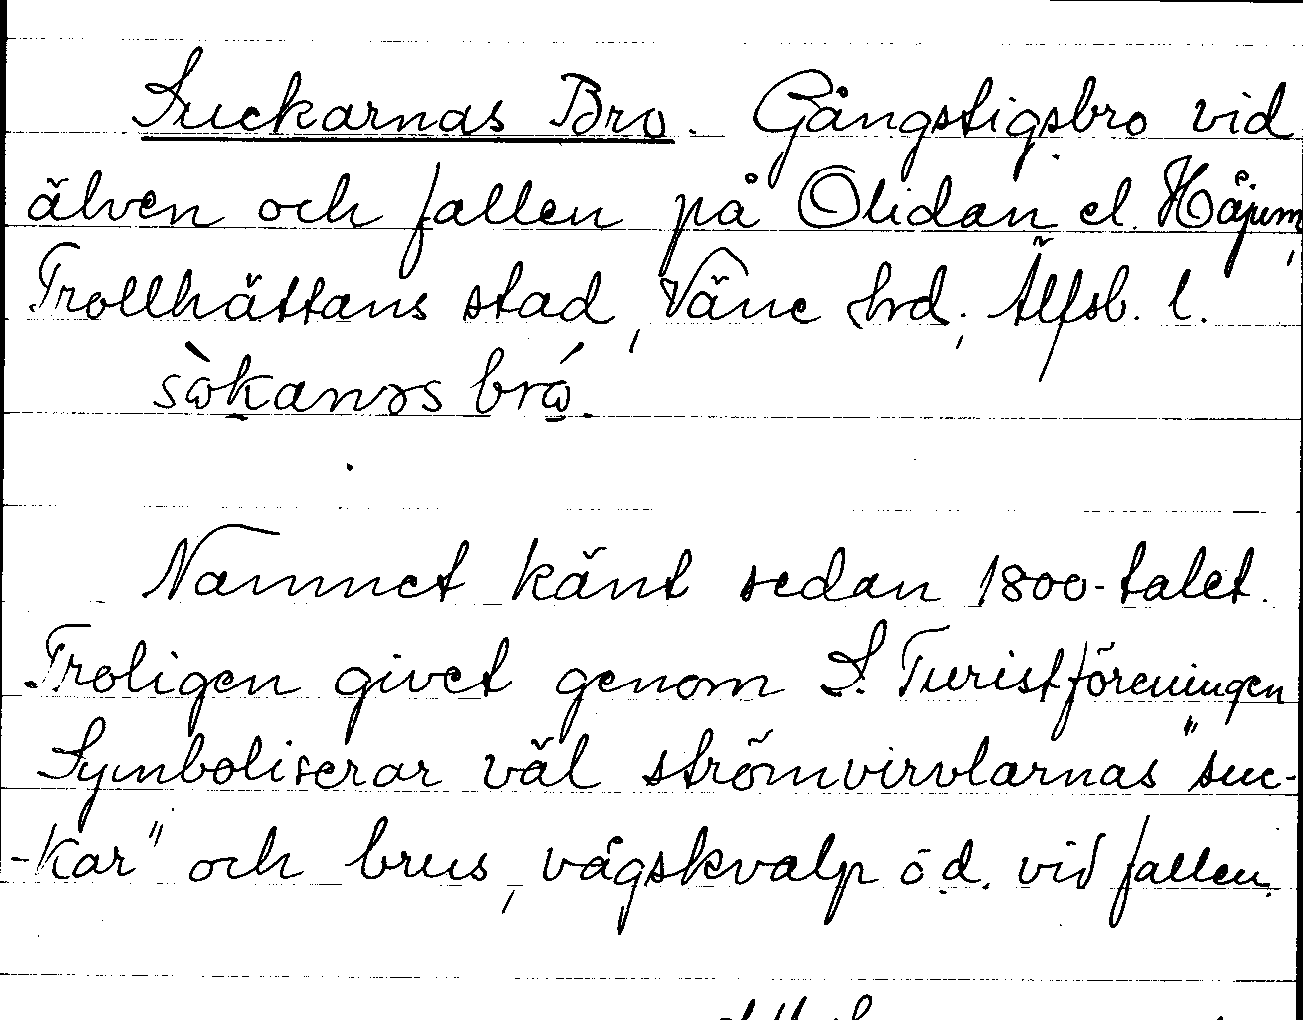 Suckarnas Bro. Gångstigsbro vid
älven och fallen på Olidan el. Håjum,
Trollhättans stad, Väne hrd, Älfsb. l.
sὼkanəs brώ.
Namnet känt sedan 1800-talet.
Troligen givet genom S. Turistföreningen
Symboliserar väl strömvirvlarnas "suc-
-kar" och brus, vågskvalp o.d. vid fallen.